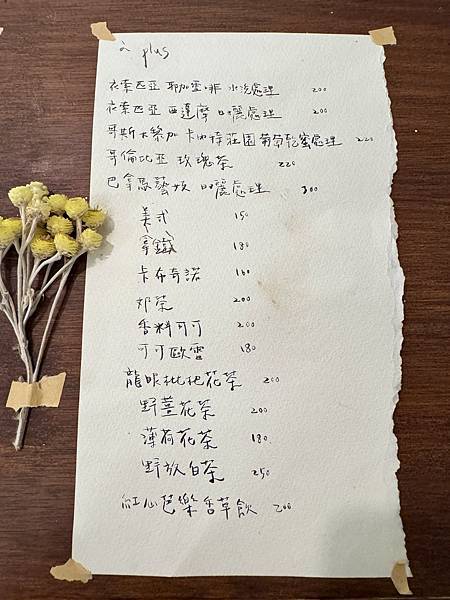 à plus
衣索匹亞 耶加雪啡 水洗處理 200
衣索匹亞 西達摩 日曬處理 200
哥斯大黎加 卡內特莊園 葡萄乾蜜處理 220
哥倫比亞 玫瑰茶 220
巴拿馬藝妓 日曬處理 300
美式 150
拿鐵 180
卡布奇諾 160
奶茶 200
香料可可 200
可可歐蕾 180
龍眼枇杷花茶 200
野薑花茶 200
薄荷花茶 180
野放白茶 250
紅心芭樂香草飲 200